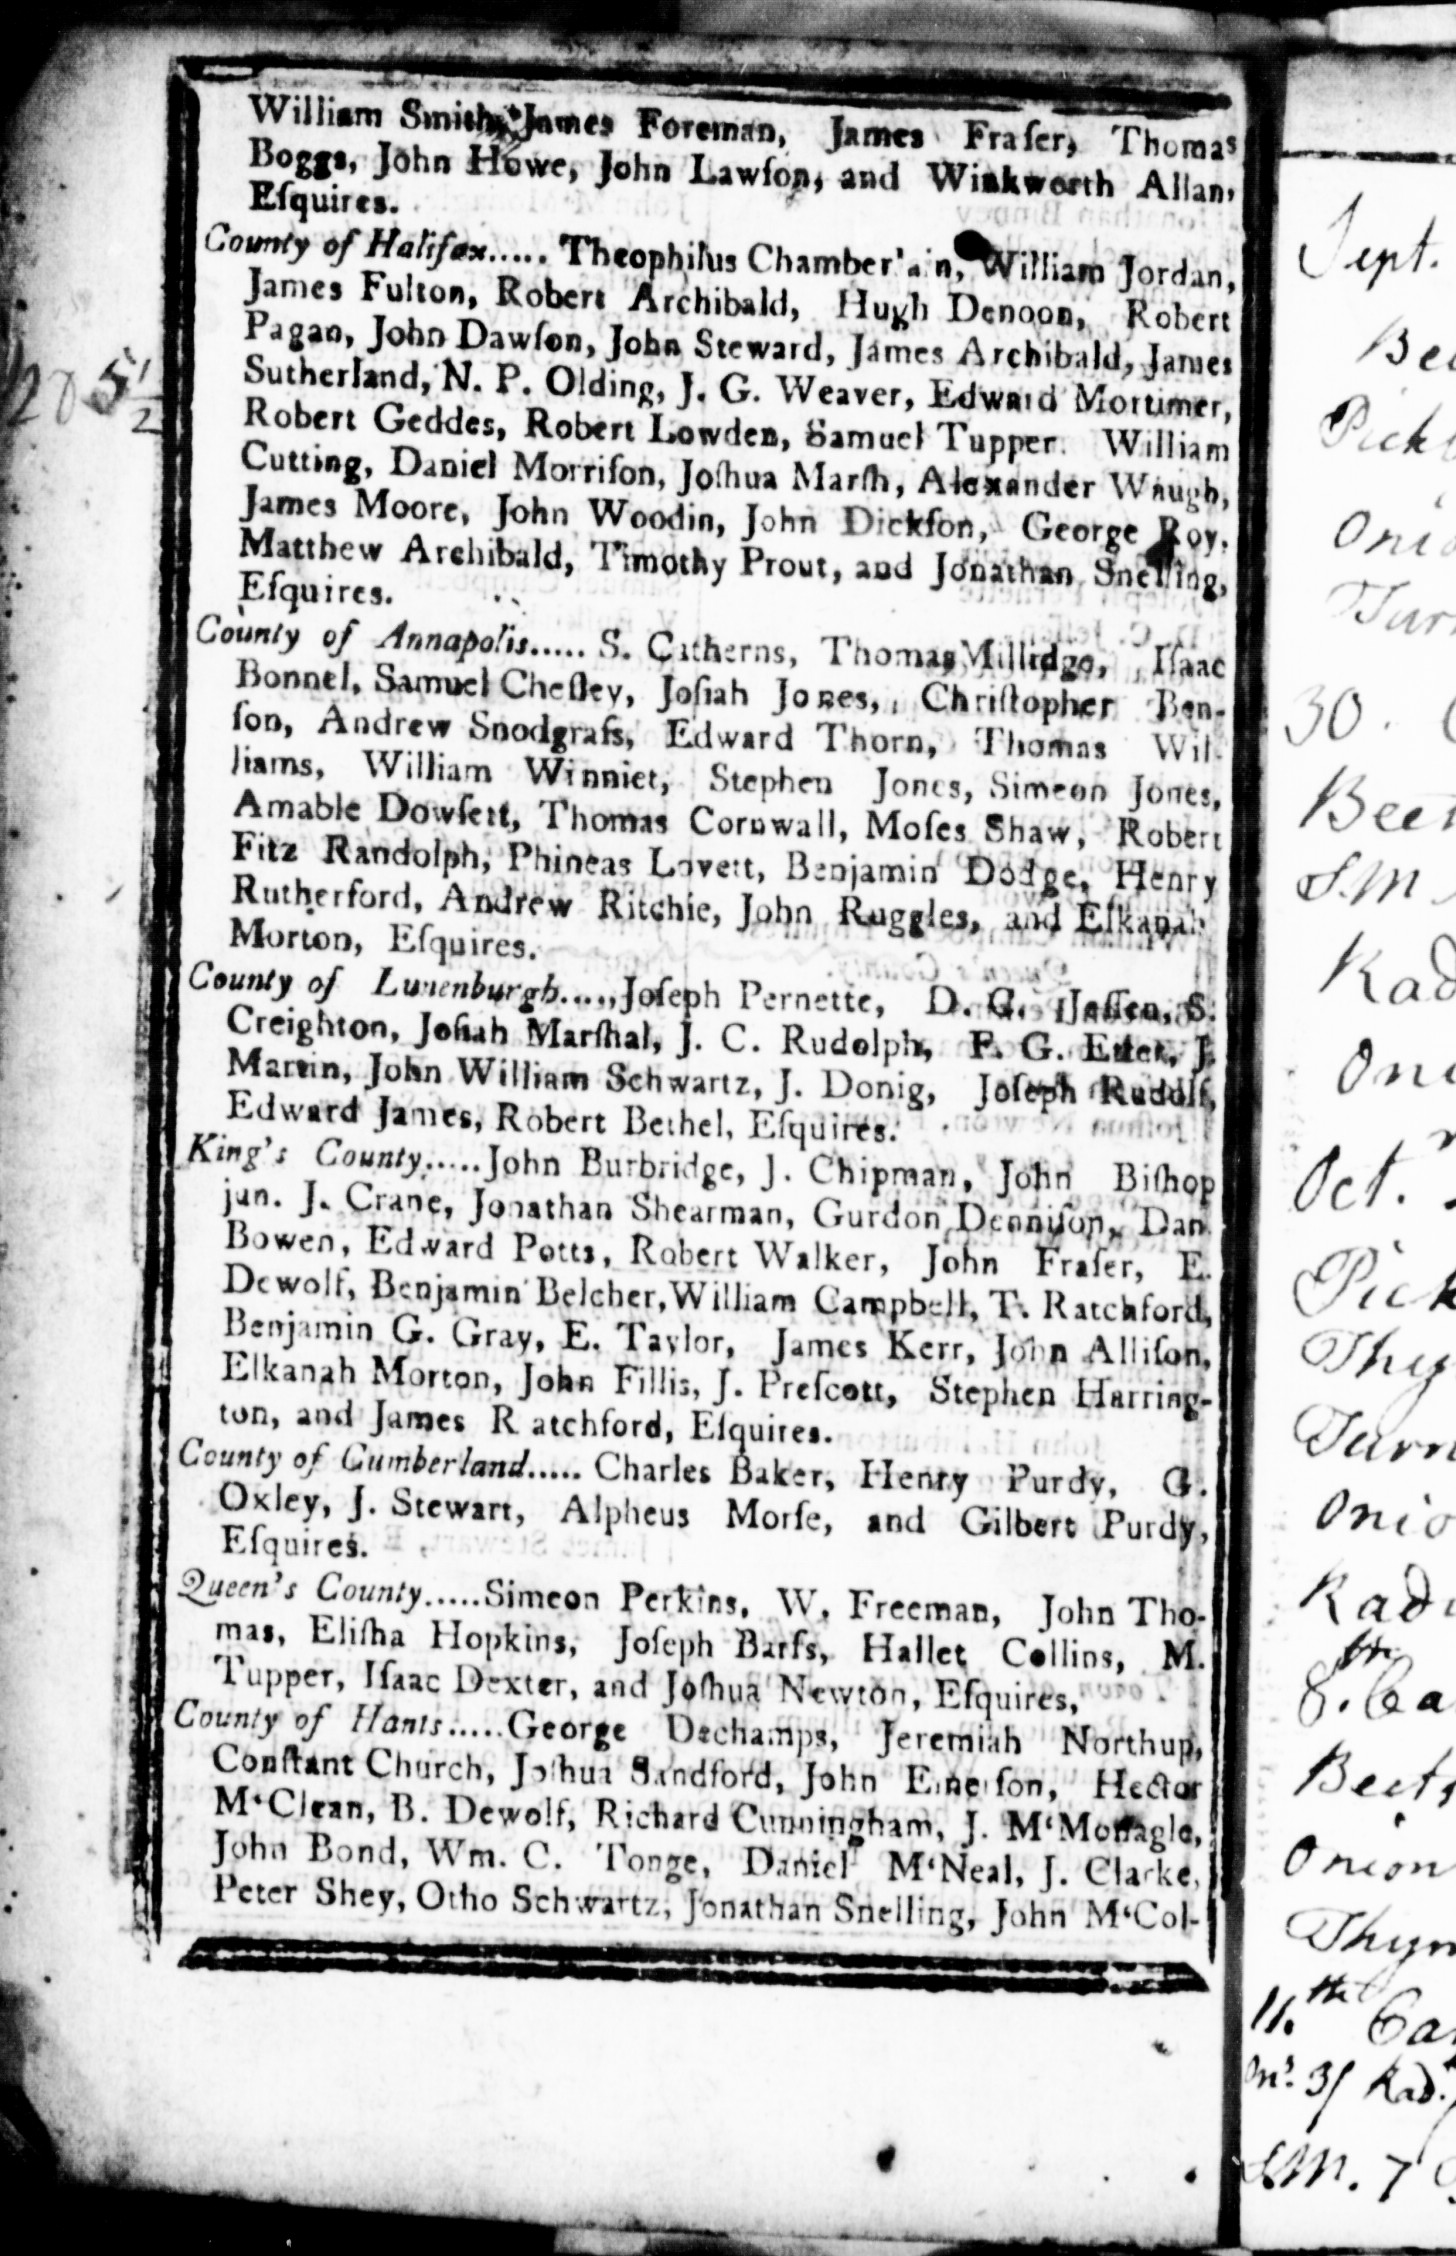 William Smith, James Foreman, James Fraſer, Thomas
Boggs, John Howe, John Lawſon, and Winkworth Allan,
Eſquires.
County of Halifax..... Theophilus Chamberlain, William Jordan,
James Fulton, Robert Archibald, Hugh Denoon, Robert
Pagan, John Dawſon, John Steward, James Archibald, James
Sutherland, N. P. Olding, J. G. Weaver, Edward Mortimer,
Robert Geddes, Robert Lowden, Samuel Tupper. William
Cutting, Daniel Morriſon, Joſhua Marſh, Alexander Waugh,
James Moore, John Woodin, John Dickſon, George Roy,
Matthew Archibald, Timothy Prout, and Jonathan Snelling,
Eſquires.
County of Annapolis..... S. Catherns, Thomas Millidge, Iſaac
Bonnel, Samuel Cheſley, Joſiah Jones, Chriſtopher Ben-
ſon, Andrew Snodgraſs, Edward Thorn, Thomas Wil-
liams, William Winniet, Stephen Jones, Simeon Jones,
Amable Dowſett, Thomas Cornwall, Moſes Shaw, Robert
Fitz Randolph, Phineas Lovett, Benjamin Dodge, Henry
Rutherford, Andrew Ritchie, John Ruggles, and Eſkanah
Morton, Eſquires.
County of Lunenburgh.....Joſeph Pernette, D. C. Jeſſen, S.
Creighton, Joſiah Marſhal, J. C. Rudolph, F. G. Etter, J.
Martin, John William Schwartz, J. Donig, Joſeph Rudolf,
Edward James, Robert Bethel, Eſquires.
King's County.....John Burbridge, J. Chipman, John Biſhop
jun. J. Crane, Jonathan Shearman, Gurdon Denniſon, Dan.
Bowen, Edward Potts, Robert Walker, John Fraſer, E.
Dewolf, Benjamin Belcher, William Campbell, T. Ratchford,
Benjamin G. Gray, E. Taylor, James Kerr, John Alliſon,
Elkanah Morton, John Fillis, J. Preſcott, Stephen Harring-
ton, and James R atchford, Eſquires.
County of Cumberland..... Charles Baker, Henry Purdy, G.
Oxley, J. Stewart, Alpheus Morſe, and Gilbert Purdy,
Eſquires.
Queen's County.....Simeon Perkins, W. Freeman, John Tho-
mas, Eliſha Hopkins, Joſeph Barſs, Hallet Collins, M.
Tupper, Iſaac Dexter, and Joſhua Newton, Eſquires,
County of Hants.....George Deſchamps, Jeremiah Northup,
Conſtant Church, Joſhua Sandford, John Emerſon, Hector
M'Clean, B. Dewolf, Richard Cunningham, J. M'Monagle,
John Bond, Wm. C. Tonge, Daniel M'Neal, J. Clarke,
Peter Shey, Otho Schwartz, Jonathan Snelling, John M'Col-
Sept.
30.
Oct.
11.th